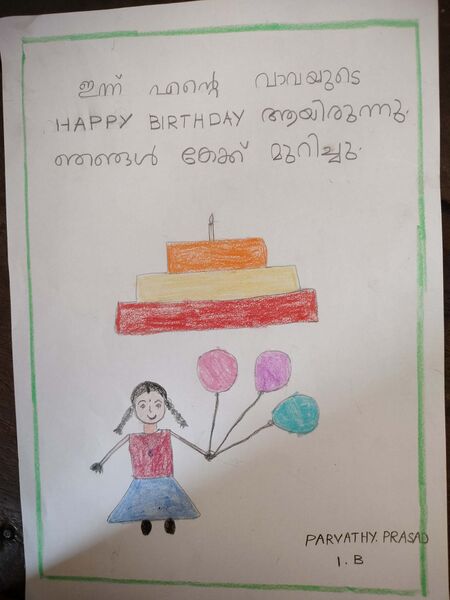 ഇന്ന് എൻ്റെ വാവയുടെ
HAPPY BIRTHDAY ആയിരുന്നു.
ഞങ്ങൾ കേക്ക് മുറിച്ചു.
PARVATHY. PRASAD
1. B